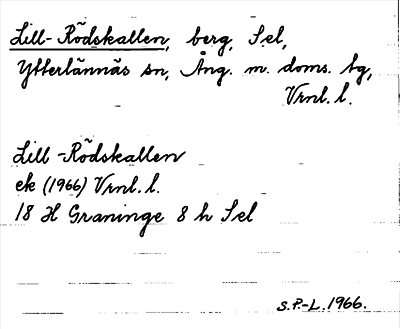 Lill-Rödskallen, berg, Sel,
Ytterlännäs sn, Ång. m. doms. tg,
Vrnl. l.
Lill-Rödskallen
ek (1966) Vrnl. l.
18 H Graninge 8 h Sel
S.P.-L. 1966.